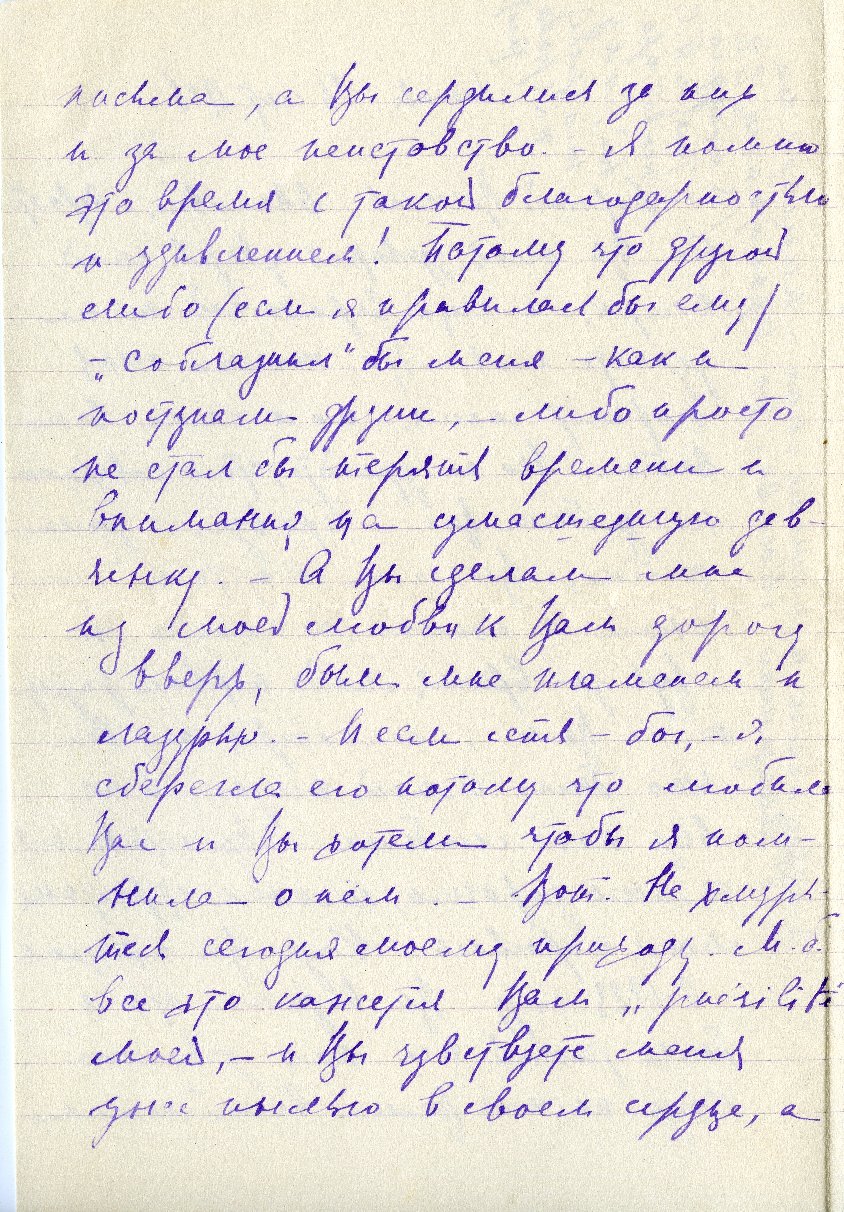 письма, а Вы сердились за них
и за мое неистовство. – Я помню
это время с такой благодарностью
и удивлением! Потому что другой
либо (если я нравилась бы ему)
– „соблазнил" бы меня – как и
поступали други, – либо просто
не стал бы терять времени и
внимания на сумасшедшую дев-
ченку. – А Вы сделали мне
из моей любви к Вам дорогу
вверх, были мне пламенем и
лазурью. – И если есть – бог, – я
сберегла его потому что любила
Вас и Вы хотели чтобы я пом-
нила – о нем. Вот. Не хмурь-
тесь сегодня моему приходу. М. б.
все это кажется Вам „puérilité
моей, – и Вы чувствуете меня
уже пылью в своем сердце, а